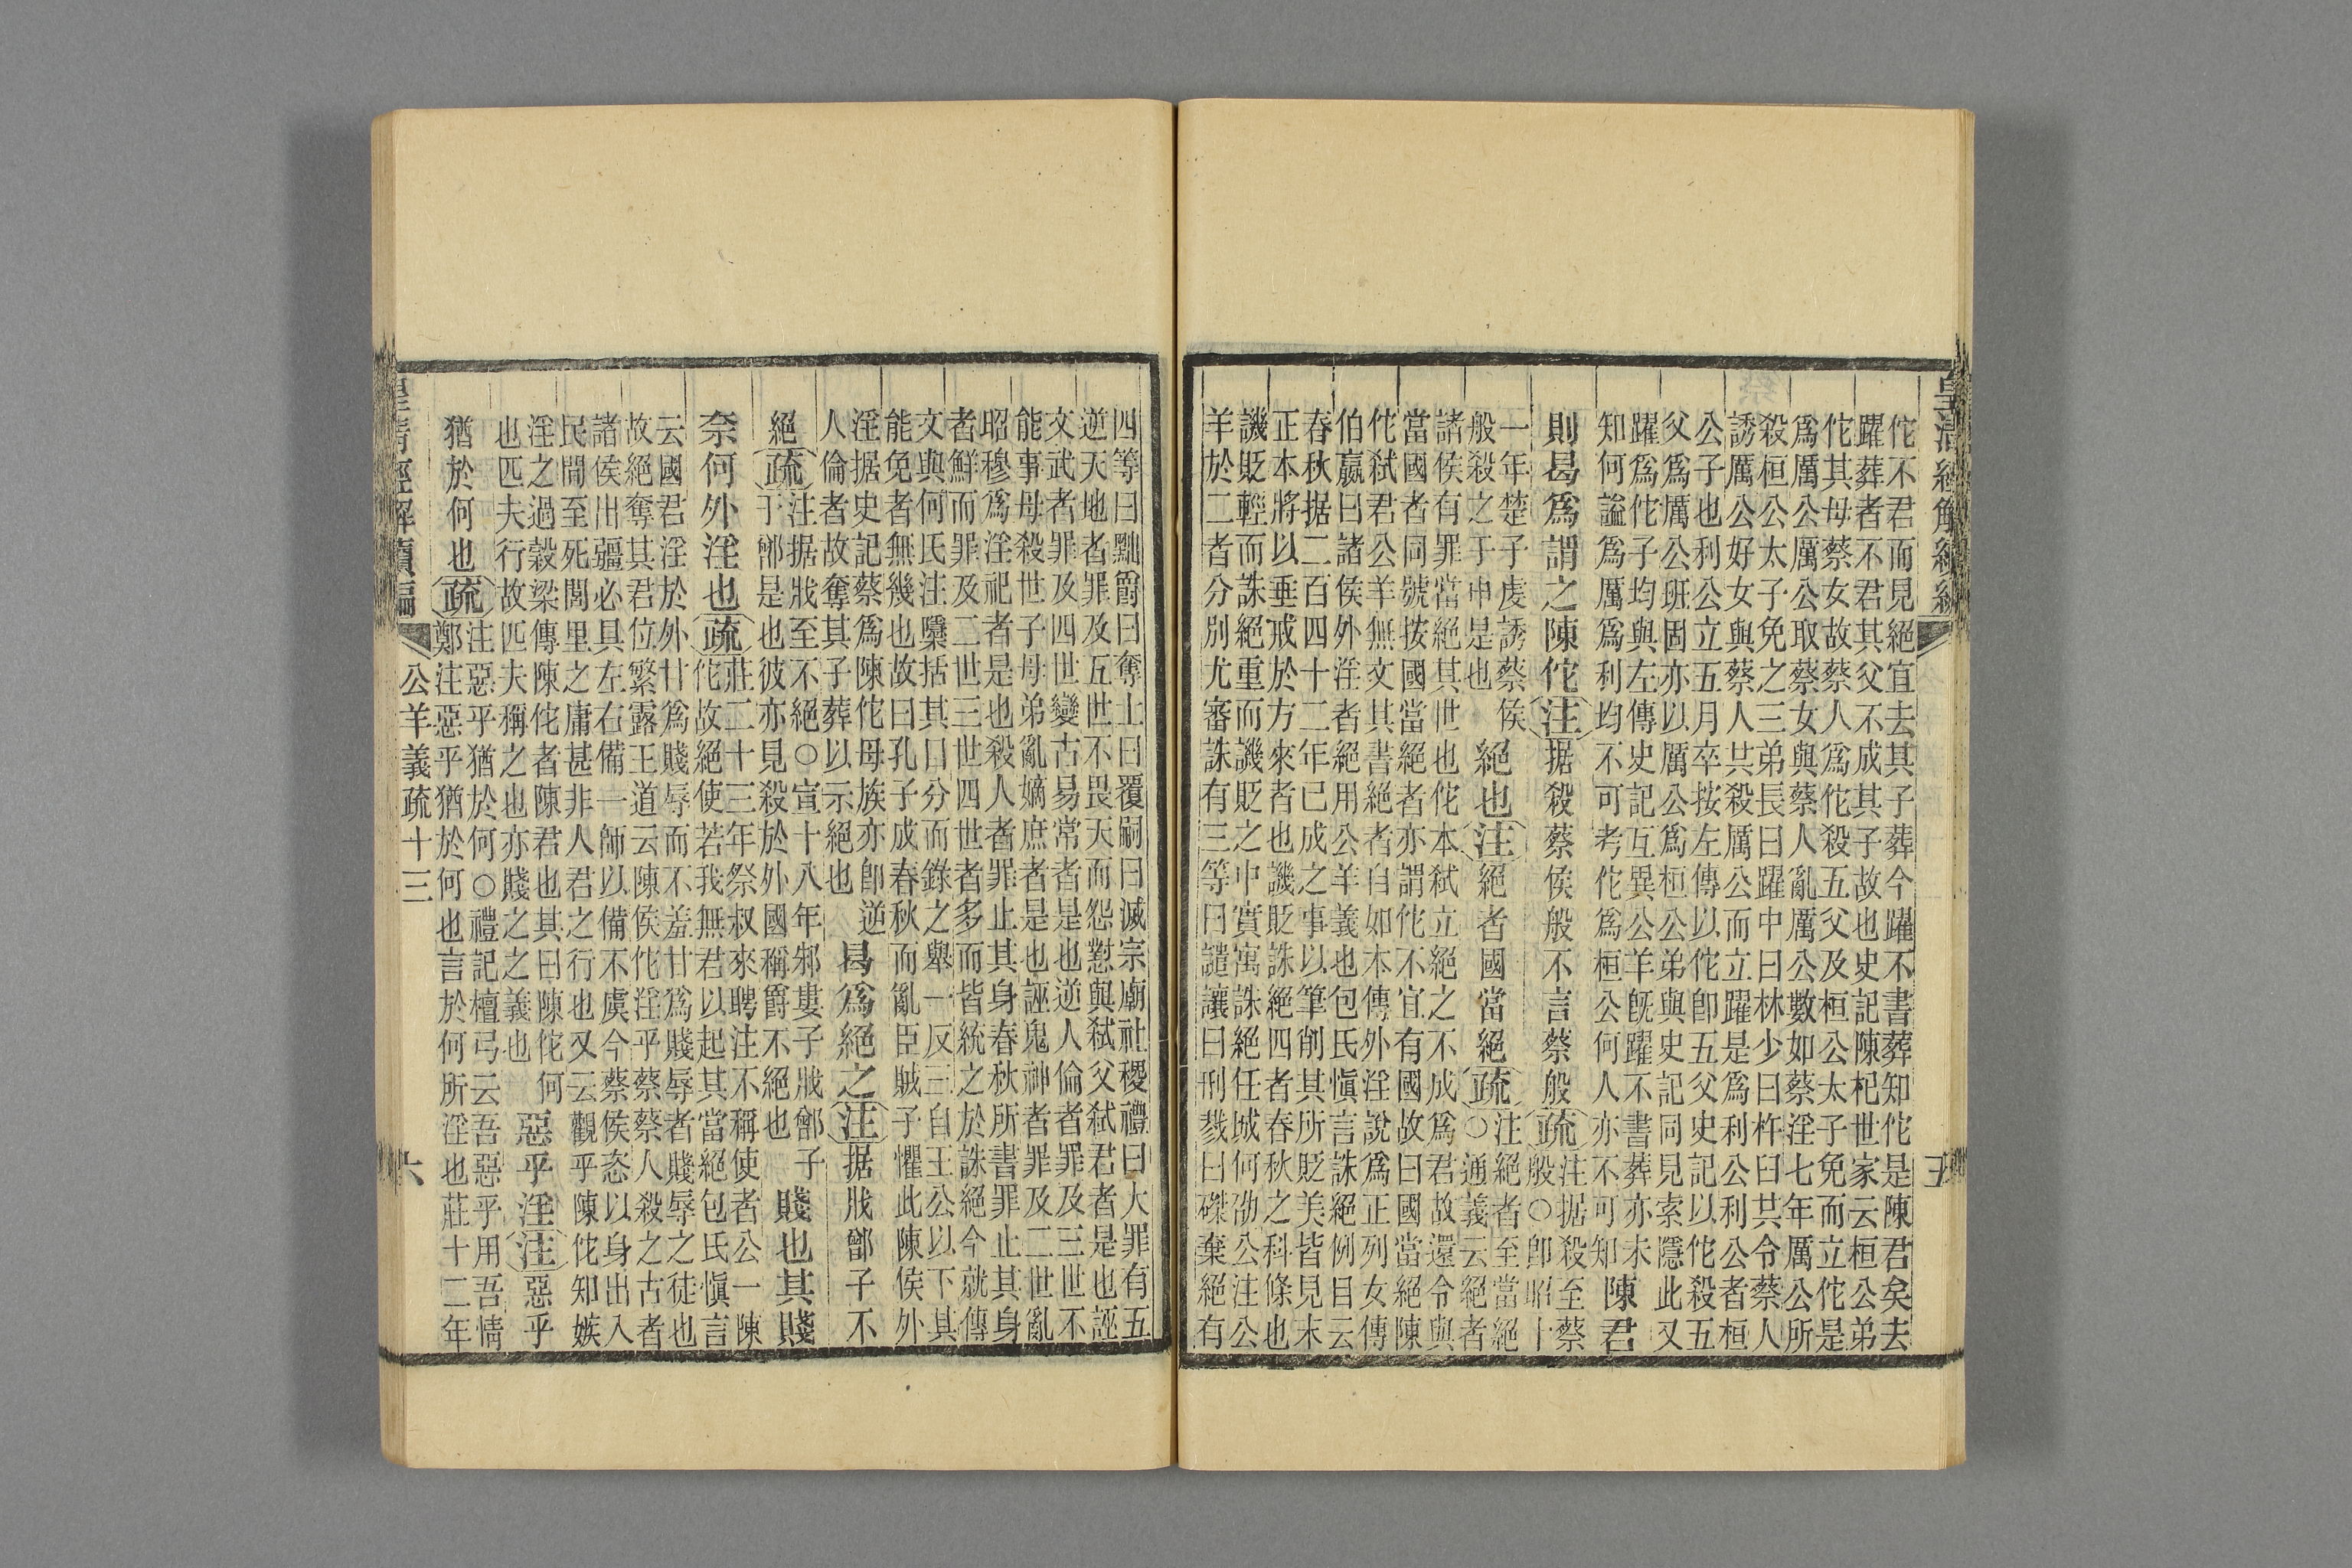 皇清經解續編
五
佗不君而見絕宜去其子葬今躍不書葬知佗是陳君矣去
躍葬者不君其父不成其子故也史記陳杞世家云桓公弟
佗其母蔡女故蔡人爲佗殺五父及桓公太子免而立佗是
爲厲公厲公取蔡女與蔡人亂厲公數如蔡淫七年厲公所
殺桓公太子免之三弟長曰躍中曰林少曰杵臼共令蔡人
誘厲公好女與蔡人共殺厲公而立躍是爲利公利公者桓
公子也利公立五月卒按左傳以佗卽五父史記以佗殺五
父爲厲公班固亦以厲公爲桓公弟與史記同見索隱此又
躍爲佗子均與左傳史記互異公羊旣躍不書葬亦未
知何謚爲厲爲利均不可考佗爲桓公何人亦不可知
陳君
則曷爲謂之陳佗注据殺蔡侯般不言蔡般疏
注据殺至蔡
般○卽昭十
一年楚子虔誘蔡侯
般殺之于申是也
絕也注絕者國當絕疏
注絕者至當絕
○通義云絕者
諸侯有罪當絕其世也佗本弒立絕之不成爲君故還令與
當國者同號按國當絕者亦謂佗不宜有國故曰國當絕陳
佗弒君公羊無文其書絕者自如本傳外淫說爲正列女傳
伯嬴曰諸侯外淫者絕用公羊義也包氏愼言誅絕例目云
春秋据二百四十二年已成之事以筆削其所貶美皆見末
正本將以垂戒於方來者也譏貶誅絕四者春秋之科條也
譏貶輕而誅絕重而譏貶之中實寓誅絕任城何劭公注公
羊於二者分別尤審誅有三等曰譴讓曰刑戮曰磔棄絕有
四等曰黜爵曰奪土曰覆嗣曰滅宗廟社稷禮曰大罪有五
逆天地者罪及五世不畏天而怨懟與弒父弒君者是也誣
文武者罪及四世變古易常者是也逆人倫者罪及三世不
能事母殺世子母弟亂嫡庶者是也誣鬼神者罪及二世亂
昭穆爲淫祀者是也殺人者罪止其身春秋所書罪止其身
者鮮而罪及二世三世四世者多而皆統之於誅絕今就傳
文與何氏注櫽括其口分而錄之舉一反三自王公以下其
能免者無幾也故曰孔子成春秋而亂臣賊子懼此陳侯外
淫据史記蔡爲陳佗母族亦卽逆
人倫者故奪其子葬以示絕也
曷爲絕之注据戕鄫子不
絕疏
注据戕至不絕○宣十八年邾婁子戕鄫子
于鄫是也彼亦見殺於外國稱爵不絕也
賤也其賤
奈何外淫也疏
莊二十三年祭叔來聘注不稱使者公一陳
佗故絕使若我無君以起其當絕包氏愼言
云國君淫於外甘爲賤辱而不羞甘爲賤辱者賤辱之徒也
故絕奪其君位繁露王道云陳侯佗淫乎蔡蔡人殺之古者
諸侯出疆必具左右備一師以備不虞今蔡侯恣以身出入
民間至死閭里之庸甚非人君之行也又云觀乎陳佗知嫉
淫之過穀梁傳陳佗者陳君也其曰陳佗何
也匹夫行故匹夫稱之也亦賤之之義也
惡乎淫注惡乎
猶於何也疏
注惡乎猶於何○禮記檀弓云吾惡乎用吾情
鄭注惡乎猶於何也言於何所淫也莊十二年
皇清經解續編
公羊義疏十三
六